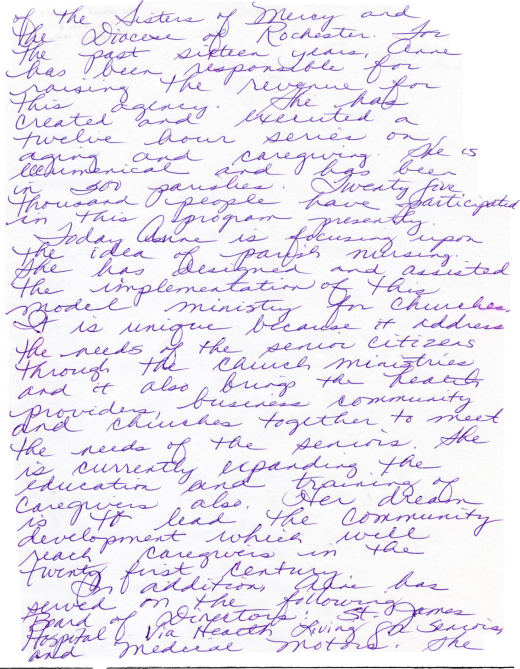 of the Sisters of Mercy and
the Diocese of Rochester. For
the past sixteen years, Anne
has been responsible for
raising the revenue for
this agency. She has
created and executed a
twelve hour series on
aging and caregiving. She is
ecumenical and has been
in 300 parishes. Twenty five
thousand people have participated
in this program presently.
Today Anne is focusing upon
the idea of parish nursing.
She has designed and assisted
the implementation of this
model ministry for churches.
It is unique because it address
the needs of the senior citizens
through the church ministries
and it also brings the health
providers, business community
and churches together to meet
the needs of the seniors. She
is currently expanding the
education and training of
caregivers also. Her dream
is to lead the community
development which will
reach caregivers in the
twenty first century.
In addition, has
served on the following
Board of Directors: St. James
Hospital, Via Health Living for Seniors,
and Medical Motors. She